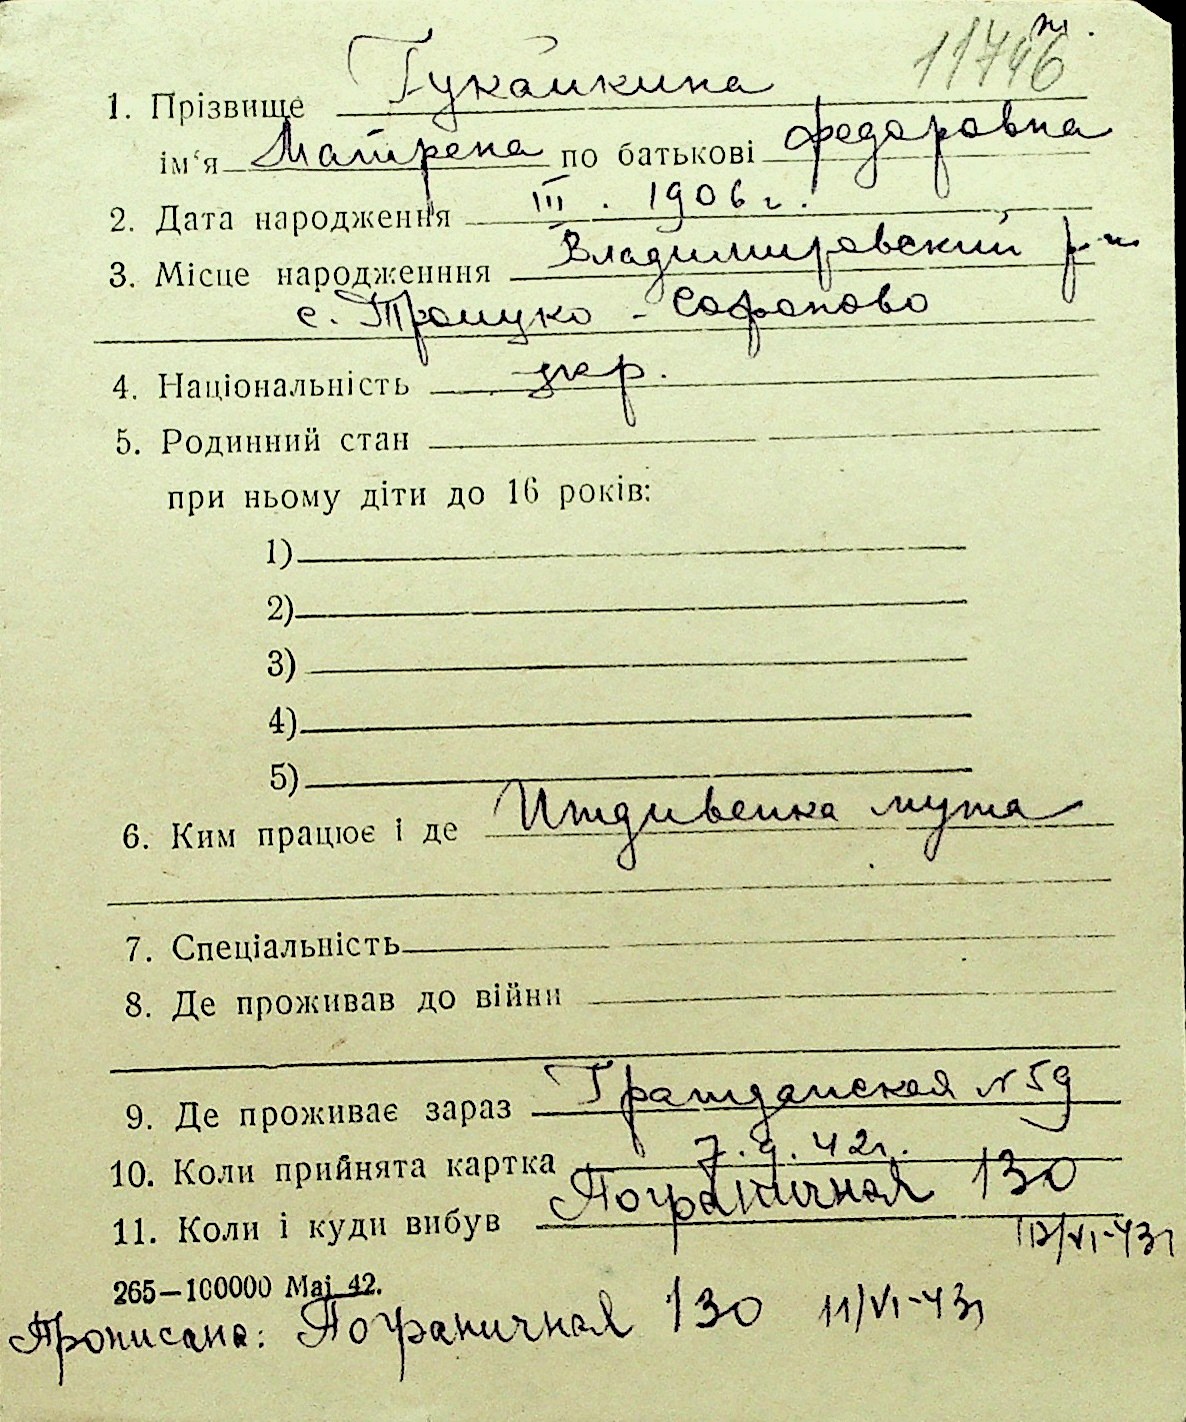 ж.
11746
1. Прізвище Гукайкина
ім'я Матрена по батькові Федоровна
2. Дата народження III. 1906 г.
3. Місце народженння Владимировский р-н
с. Троицко - Сафоново
4. Національність укр.
5. Родинний стан
при ньому діти до 16 років:
1)
2)
3)
4)
5)
6. Ким працює і де Иждивенка мужа
7. Спеціальність
8. Де проживав до війни
9. Де проживає зараз Гражданская N 59
10. Коли прийнята картка 7.9.42 г.
11. Коли і куди вибув Пограничная 130
/VI-43 г
265—100000 Mai 42.
Прописана: Пограничная 130 11/VI-43 г